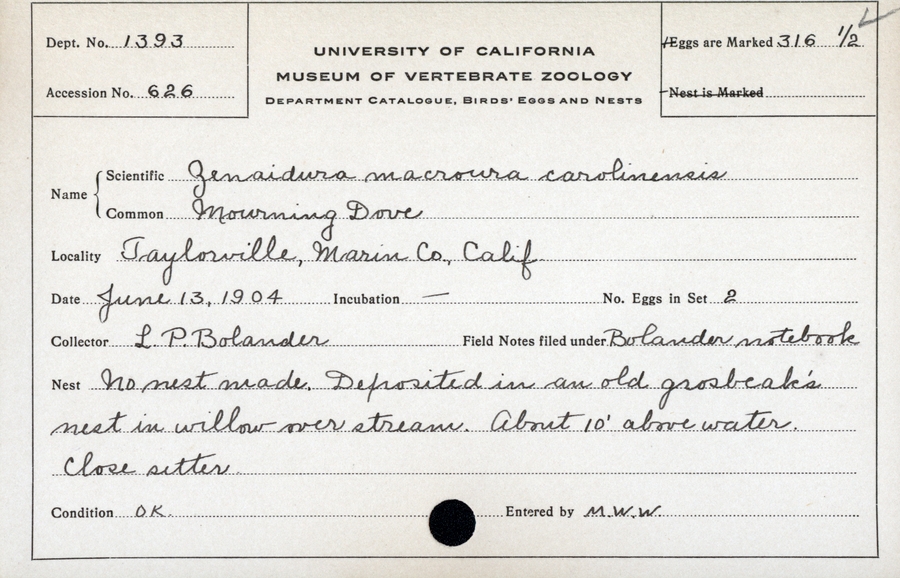 Dept. No. 1393
Accession No. 626
UNIVERSITY OF CALIFORNIA
MUSEUM OF VERTEBRATE ZOOLOGY
DEPARTMENT CATALOGUE, BIRDS' EGGS AND NESTS
Eggs are Marked 316 1/2
Nest is Marked
Name
Scientific Zenaidura macroura carolinensis
Common Mourning Dove
Locality Taylorville, Marin Co., Calif
Date June 13, 1904 Incubation — No. Eggs in Set 2
Collector L. P. Bolander Field Notes filed under Bolander notebook
Nest No nest made. Deposited in an old grosbeak's
nest in willow over stream. About 10' above water.
Close sitter
Condition OK. Entered by M.W.W.